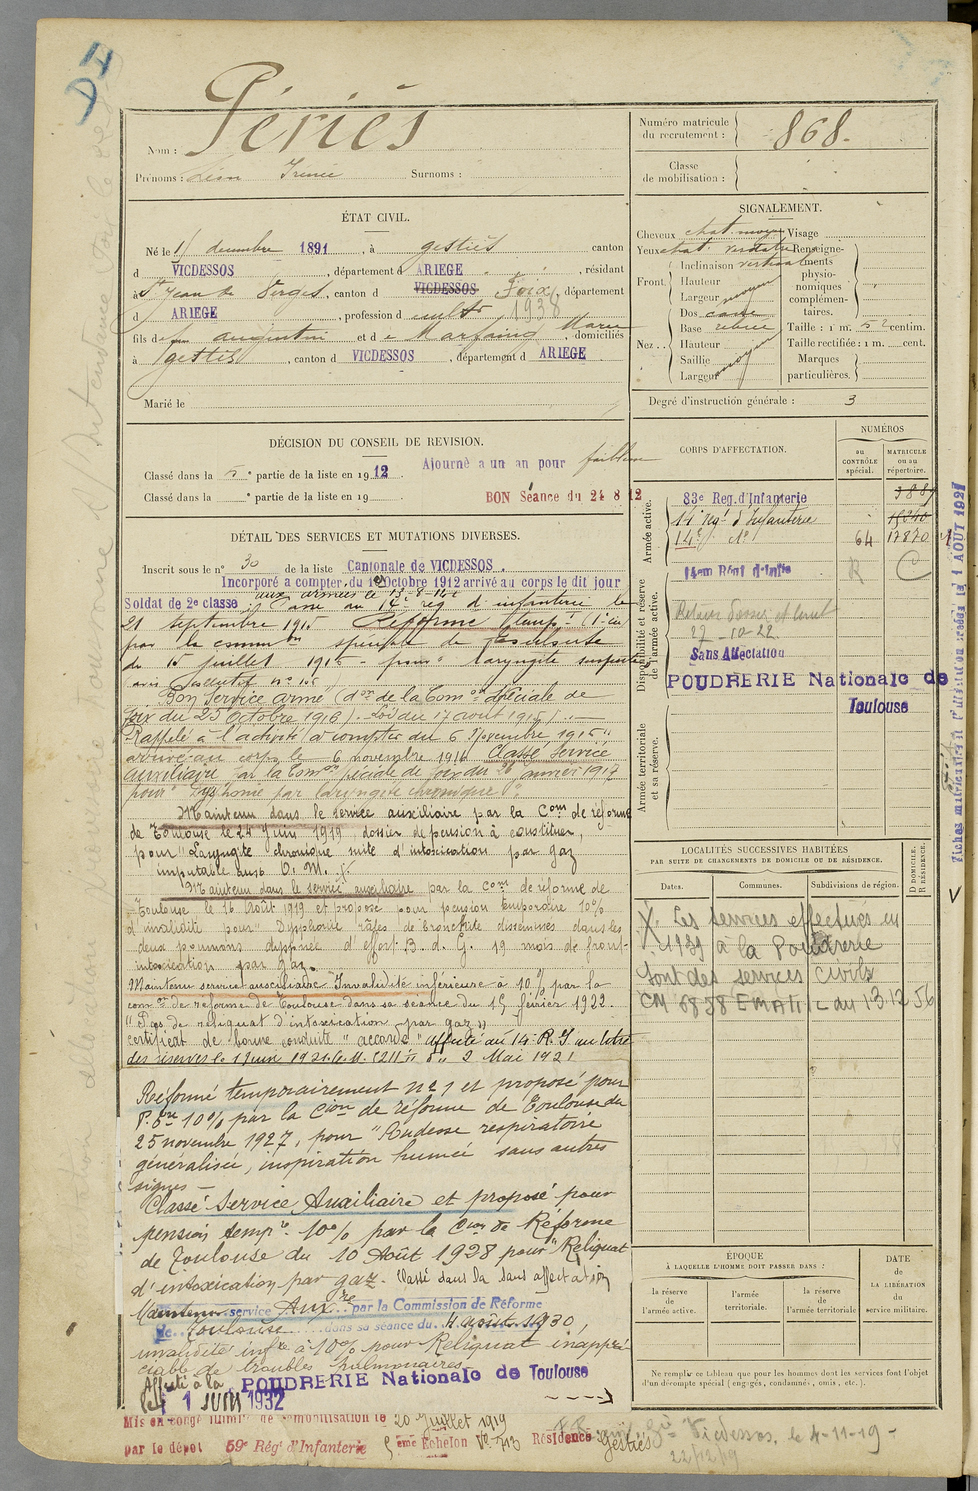 D I
Nom : Périès
Prénoms : Léon Irénée Surnoms :
Numéro matricule
du recrutement : 868.
Classe
de mobilisation :
ÉTAT CIVIL.
Né le 15 décembre 1891, à gestiès canton
d VICDESSOS, département d ARIEGE, résidant
à St Jean de Verges, canton d VICDESSOS Foix, département
1938
d ARIEGE, profession d cultr
fils de augustin et de Marfaing Marie, domiciliés
à gestiès, canton d VICDESSOS, départemt d ARIEGE
Marié le
SIGNALEMENT.
Cheveux chat. moyen Visage
Yeux chat. verdâtre Renseigne-
ments
physio-
nomiques
complémen-
taires.
Front. Inclinaison verticale
Hauteur
Largeur moyen
Nez . . Dos cave
Base relevée
Hauteur
Saillie moyen
Largeur
Taille : 1 m. centim.
Taille rectifiée : 1 m. cent.
Marques
particulières.
Degré d'instruction générale : 3
DÉCISION DU CONSEIL DE REVISION.
Classé dans la 5 e partie de la liste en 1912 Ajourné a un an pour faiblesse
Classé dans la e partie de la liste en 19 BON Séance du 24 8 12
DÉTAIL DES SERVICES ET MUTATIONS DIVERSES.
Inscrit sous le n° 30 de la liste Cantonale de VICDESSOS.
Incorporé a compter du Octobre 1912 arrivé au corps le dit jour
Soldat de 2e classe aux armées le
Passé au 14e rég d'infanterie le
21 septembre 1915 Réforme temp
par la common spéciale de
du 15 juillet 1916 pour laryngite suspecte
Bon Service armé (don de la Comon Spéciale de
Foix du 23 Octobre 1916). Loi du 17 août 1915).
Rappelé à l'activité à compter du 6
arrivé au corps le 6 novembre 1916 Classé Service
auxiliaire par la Comon spéciale de foix du 26 janvier 1917
pour "Dysphonie par laryngite chronique"
Maintenu dans le service auxiliaire par la Com de réforme
de Toulouse le 24 Juin 1919 dossier de pension à constituer,
pour "Laryngite chronique suite d'intoxication par gaz
imputable au
Maintenu dans le service auxiliaire par la Com de réforme de
Toulouse le 16 Août 1919 et proposé pour pension temporaire 10%
d'invalidité pour "Dysphonie râles de bronchite disséminés dans les
deux poumons dyspnée d'effort B. d. G. 19 mois de front-
intoxication par gaz.
Maintenu service auxiliaire "Invalidité inférieure à 10% par la
comon de réforme de Toulouse dans sa séance du 15 février 1922.
"Pas de reliquat d'intoxication par gaz"
certificat de bonne conduite "accordé" affecté au 14e R.I au titre
des réserves le 1 Juin 1921 2 Mai 1921
Réformé temporairement n° 1 et proposé pour
P. 10% par la Cion de réforme de Toulouse du
25 novembre 1927, pour "Rudesse respiratoire
généralisée, inspiration humée sans autres
signes -
Classé Service Auxiliaire et proposé pour
pension tempre 10% par la Cion de Réforme
de Toulouse du 10 Août 1928 pour "Reliquat
d'intoxication par gaz. Classé dans la sans affectation
Maintenu service Auxre par la Commission de Réforme
de Toulouse dans sa séance du 4 août 1930,
invalidité infre à 10% pour Reliquat inappré
ciable de troubles pulmonaires
Affecté à la POUDRERIE Nationale de Toulouse
le 1 JUIN 1932
Mis en congé illimité de démobilisation le 20 Juillet 1919
par le dépot 59e Régt d'Infanterie 5eme Echelon N° 713 Résidence Gestiès Vicdessos, le 4-11-19-
22/12/19
CORPS D'AFFECTATION.
NUMÉROS
au
CONTRÔLE
spécial.
MATRICULE
ou au
répertoire.
Armée active.
83e Reg. d'Infanterie
14e regt d'Infanterie
14e do 64 17870
Disponibilité et réserve
de l'armée active.
14em Régt d'Infie R C
27-10-22
Sans Affectation
POUDRERIE Nationale de
Toulouse
Armée territoriale
et sa réserve.
LOCALITÉS SUCCESSIVES HABITÉES
PAR SUITE DE CHANGEMENTS DE DOMICILE OU DE RÉSIDENCE.
Dates. Communes. Subdivisions de région. D DOMICILE. R RÉSIDENCE.
X. Les services effectués en
1939 à la Poudrerie
sont des services civils
CM 6858 EMA/1 L du 13.12.56
ÉPOQUE
À LAQUELLE L'HOMME DOIT PASSER DANS :
la réserve
de
l'armée active.
l'armée
territoriale.
la réserve
de
l'armée territoriale
DATE
de
LA LIBÉRATION
du
service militaire.
Ne remplir ce tableau que pour les hommes dont les services font l'objet
d'un décompte spécial (engagés, condamnés, omis, etc.).